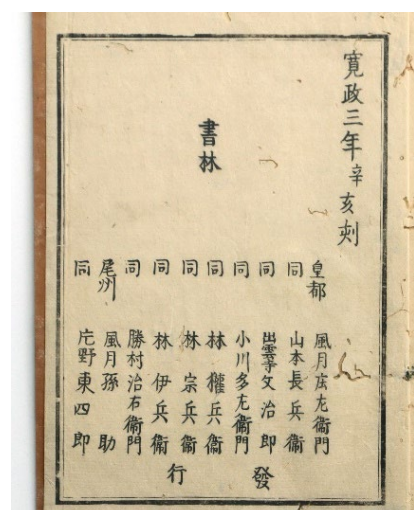 寛政三年辛亥刻
書林
皇都 風月庄左衞門
同 山本長兵衞
同 出雲寺文治郎
同 小川多左衞門
同 林權兵衞
同 林宗兵衞
同 林伊兵衞
同 勝村治右衞門
尾州 風月孫助
同 片野東四郎
發行